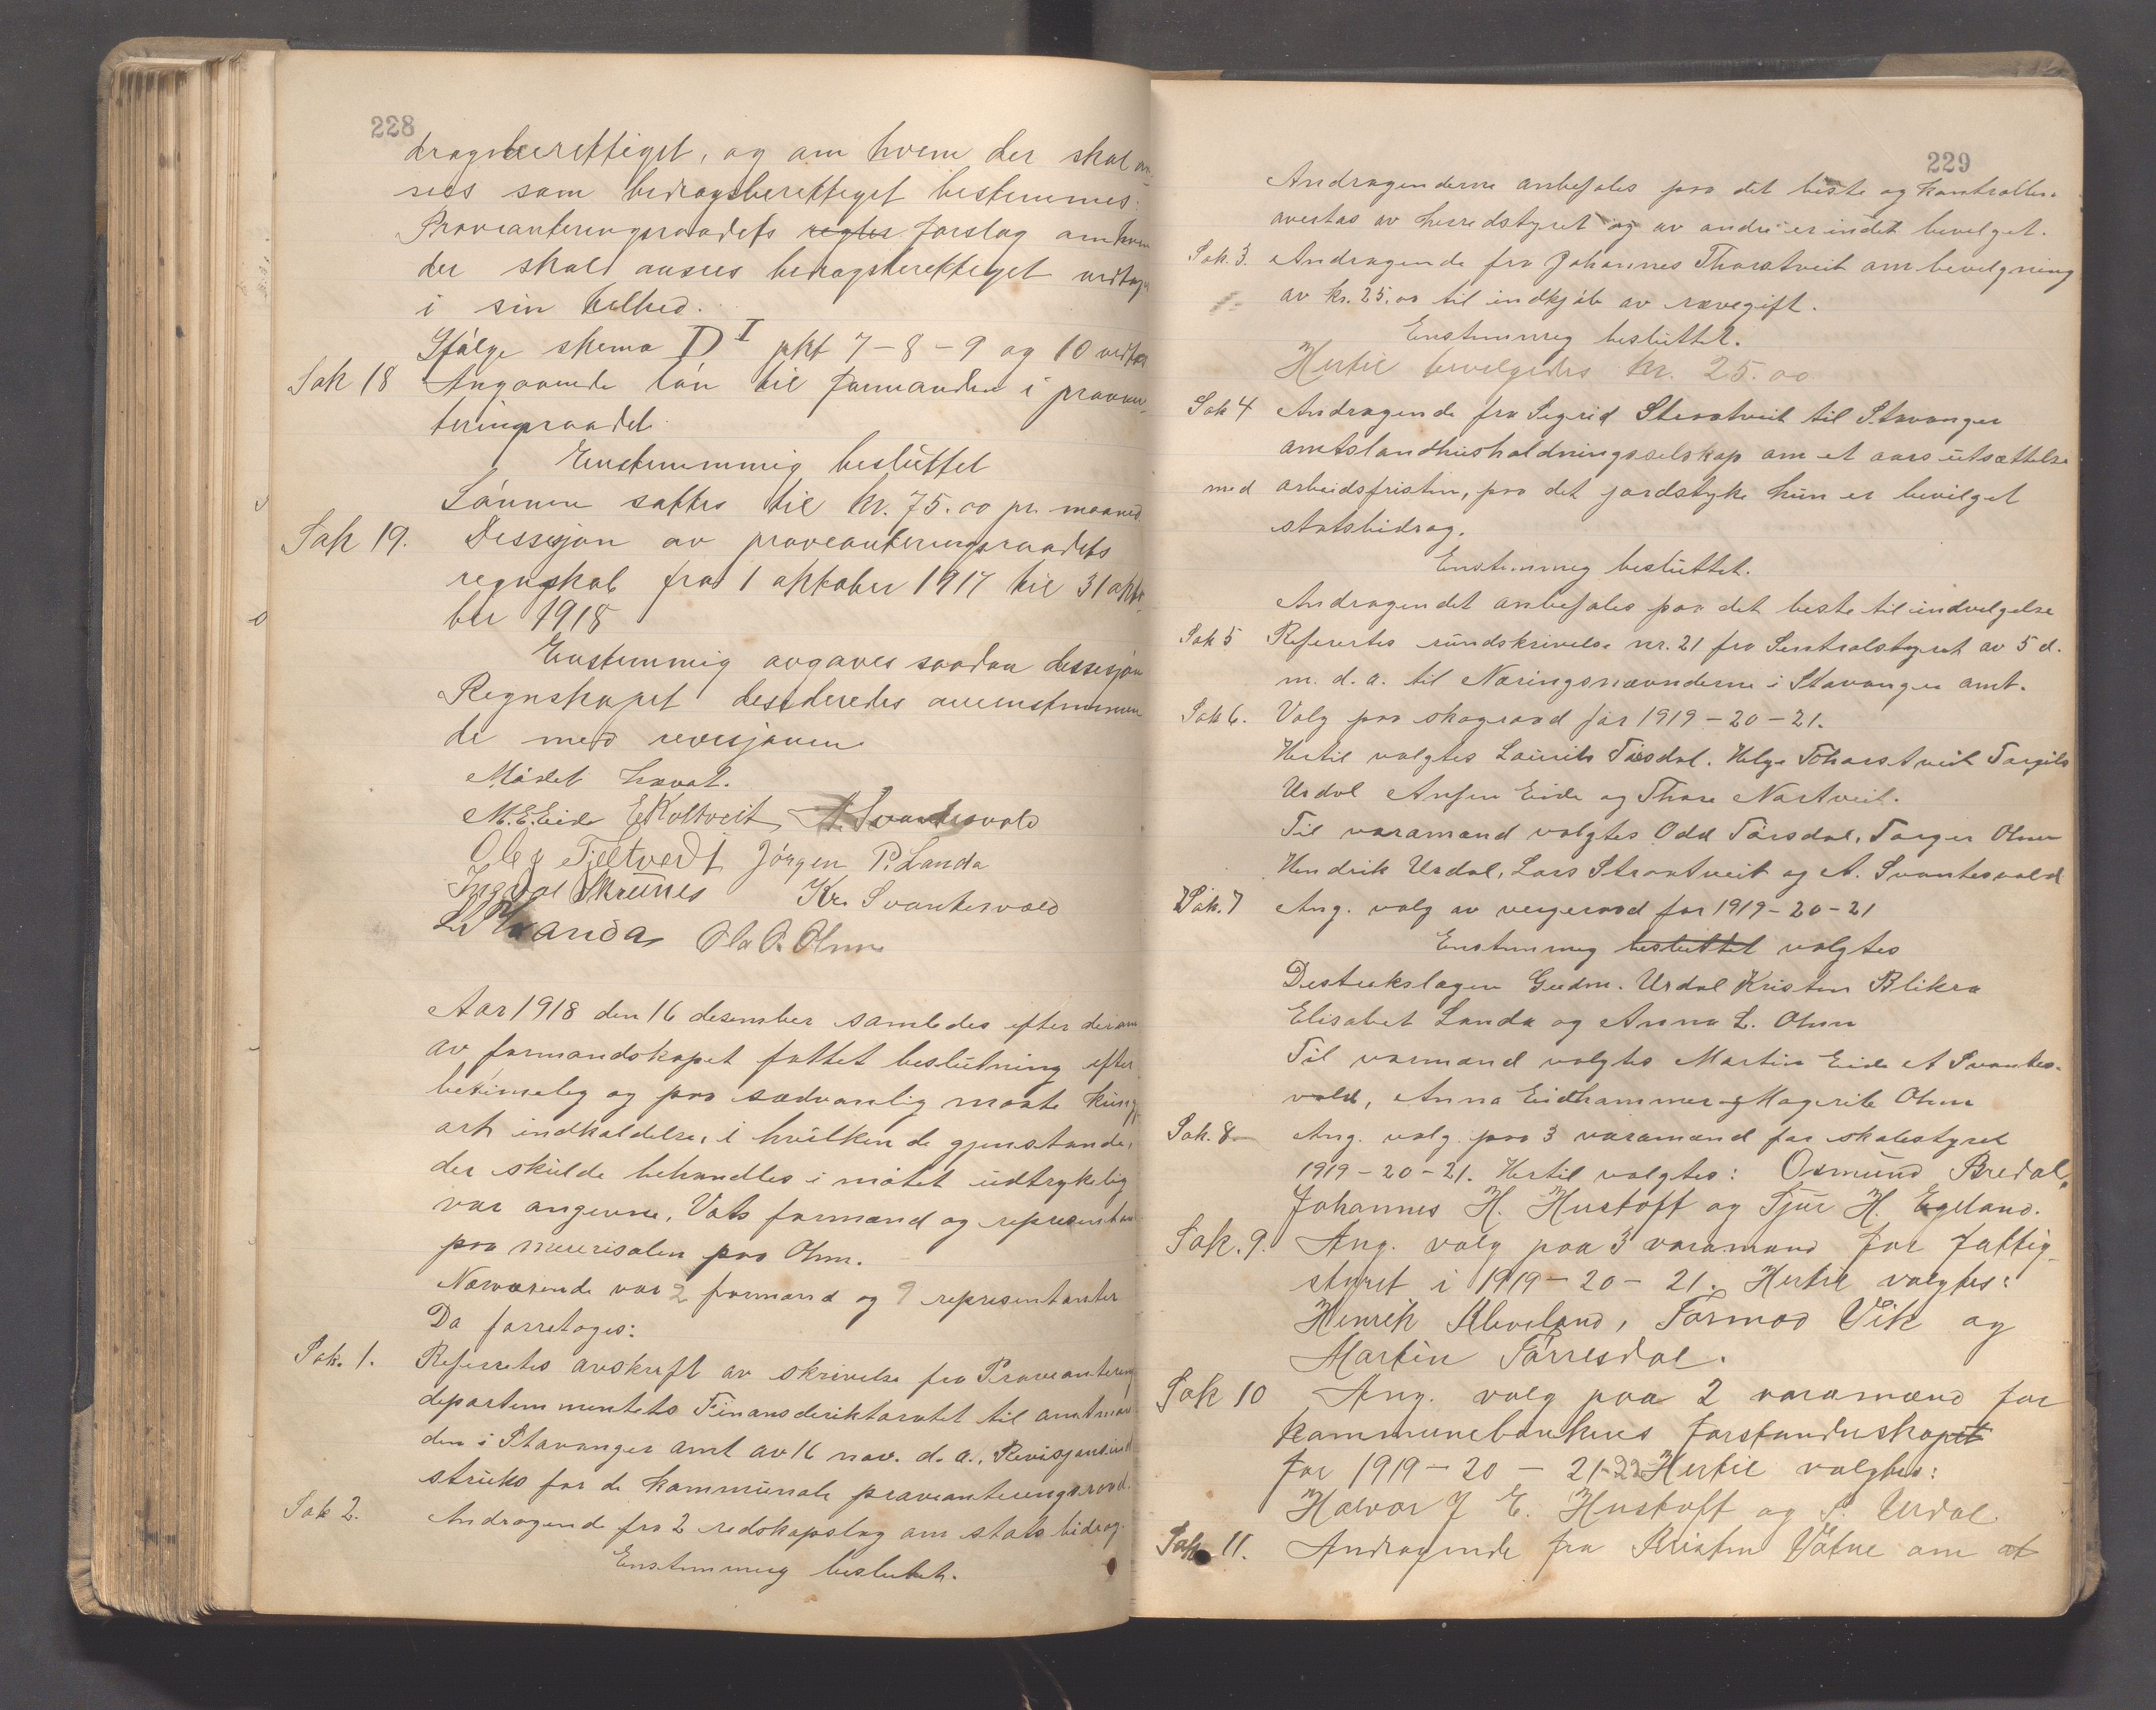 228
dragsberettiget, og om hvem der skal an-
sees som bidragsberettiget bestemmes:
Provianteringsraadets regler forslag om hvem
der skal ansees bidragsberettiget vedtages
i sin helhed.
Ifølge skema D I pkt 7-8-9 og 10 vedtas
Sak 18 Angaaende løn til formanden i provian-
teringsraadet.
Enstemmig besluttet
Lønnen sattes til kr. 75.00 pr. maaned
Sak 19. Dessisjon av provianteringsraadets
regnskab fra 1 oktober 1917 til 31 okto-
ber 1918
Enstemmig avgaves saadan dessisjon
Regnskapet desideredes overenstemmen
de med revisjonen
Mødet hævet.
M. E. Eide E Koltveit A. Svantesvold
Ole J Fjeltvedt Jørgen P. Landa
Ingvar Skrunes Kr. Svantesvold
Ola O. Ohm
Aar 1918 den 16 desember samledes efter derom
av formandskapet fattet beslutning efter
betimelig og paa sædvanlig maate kung-
ort indkaldelse, i hvilken de gjenstande,
der skulde behandles i møtet udtrykelig
var angivne, Vats formænd og representan
paa meierisalen paa Ohm.
Nærværende var 2 formænd og 9 representanter
Da forretoges:
Sak. 1. Refirertes avskrift av skrivelse fra Provianterings
departementets Finansdirektoratet til amtman
den i Stavanger amt av 16 nov. d. a., Revisjonsind
struks for de kommunale provianteringsraad.
Sak 2. Andragende fra 2 redskapslag om statsbidrag.
Enstemmig besluttet.
229
Andragenderne anbefales paa det beste og kontrollen
avertas av herredstyret og av andre er indet bevilget.
Sak. 3. Andragende fra Johannes Thorstveit om bevilgning
av kr. 25.00 til indkjøb av rævegift.
Enstemmig besluttet.
Hertil bevilgedes kr. 25.00
Sak 4 Andragende fra Sigrid Straatveit til Stavanger
amtslandhusholdningsselskap om et aars utsættelse
med arbeidsfristen, paa det jordstyke hun er bevilget
statsbidrag.
Enstemmig besluttet.
Andragendet anbefales paa det beste til indvilgelse
Sak 5 Referertes rundskrivelse nr. 21 fra Sentralstyret av 5 d.
m. d. a. til Næringsnævnderne i Stavanger amt.
Sak 6. Valg paa skograad før 1919-20-21.
Hertil valgtes Laurits Tørsdal. Helge Thorstveit Torgils
Urdal Anfin Eide og Thore Nortveit.
Til varamænd valgtes Odd Tørsdal, Torger Ohm
Hendrik Urdal, Lars Straatveit og A. Svantesvold
Sak. 7 Ang. valg av vergeraad for 1919-20-21
Enstemmig besluttet valgtes
Destrikslægen Gudm. Urdal Kristen Blikra
Elisabet Landa og Anna L. Ohm
Til varmænd valgtes Martin Eide A Svantes-
vold, Anna Eidhammer og Magrete Ohm
Sak. 8 Ang. valg paa 3 varamænd for skolestyret
1919-20-21. Hertil valgtes: Osmund Bredal,
Johannes H. Hustoft og Tjur H. Egeland.
Sak. 9. Ang. valg paa 3 varamænd for fattig-
styret i 1919-20-21. Hertil valgtes:
Henrik Kleveland, Tormod Vik og
Martin Tørresdal.
Sak 10 Ang. valg paa 2 varamænd for
kommunebankens forstanderskapet
for 1919-20-21-22 Hertil valgtes:
Halvor J E. Hustoft og S. Urdal.
Sak. 11. Andragende fra Kristen Vatne om at